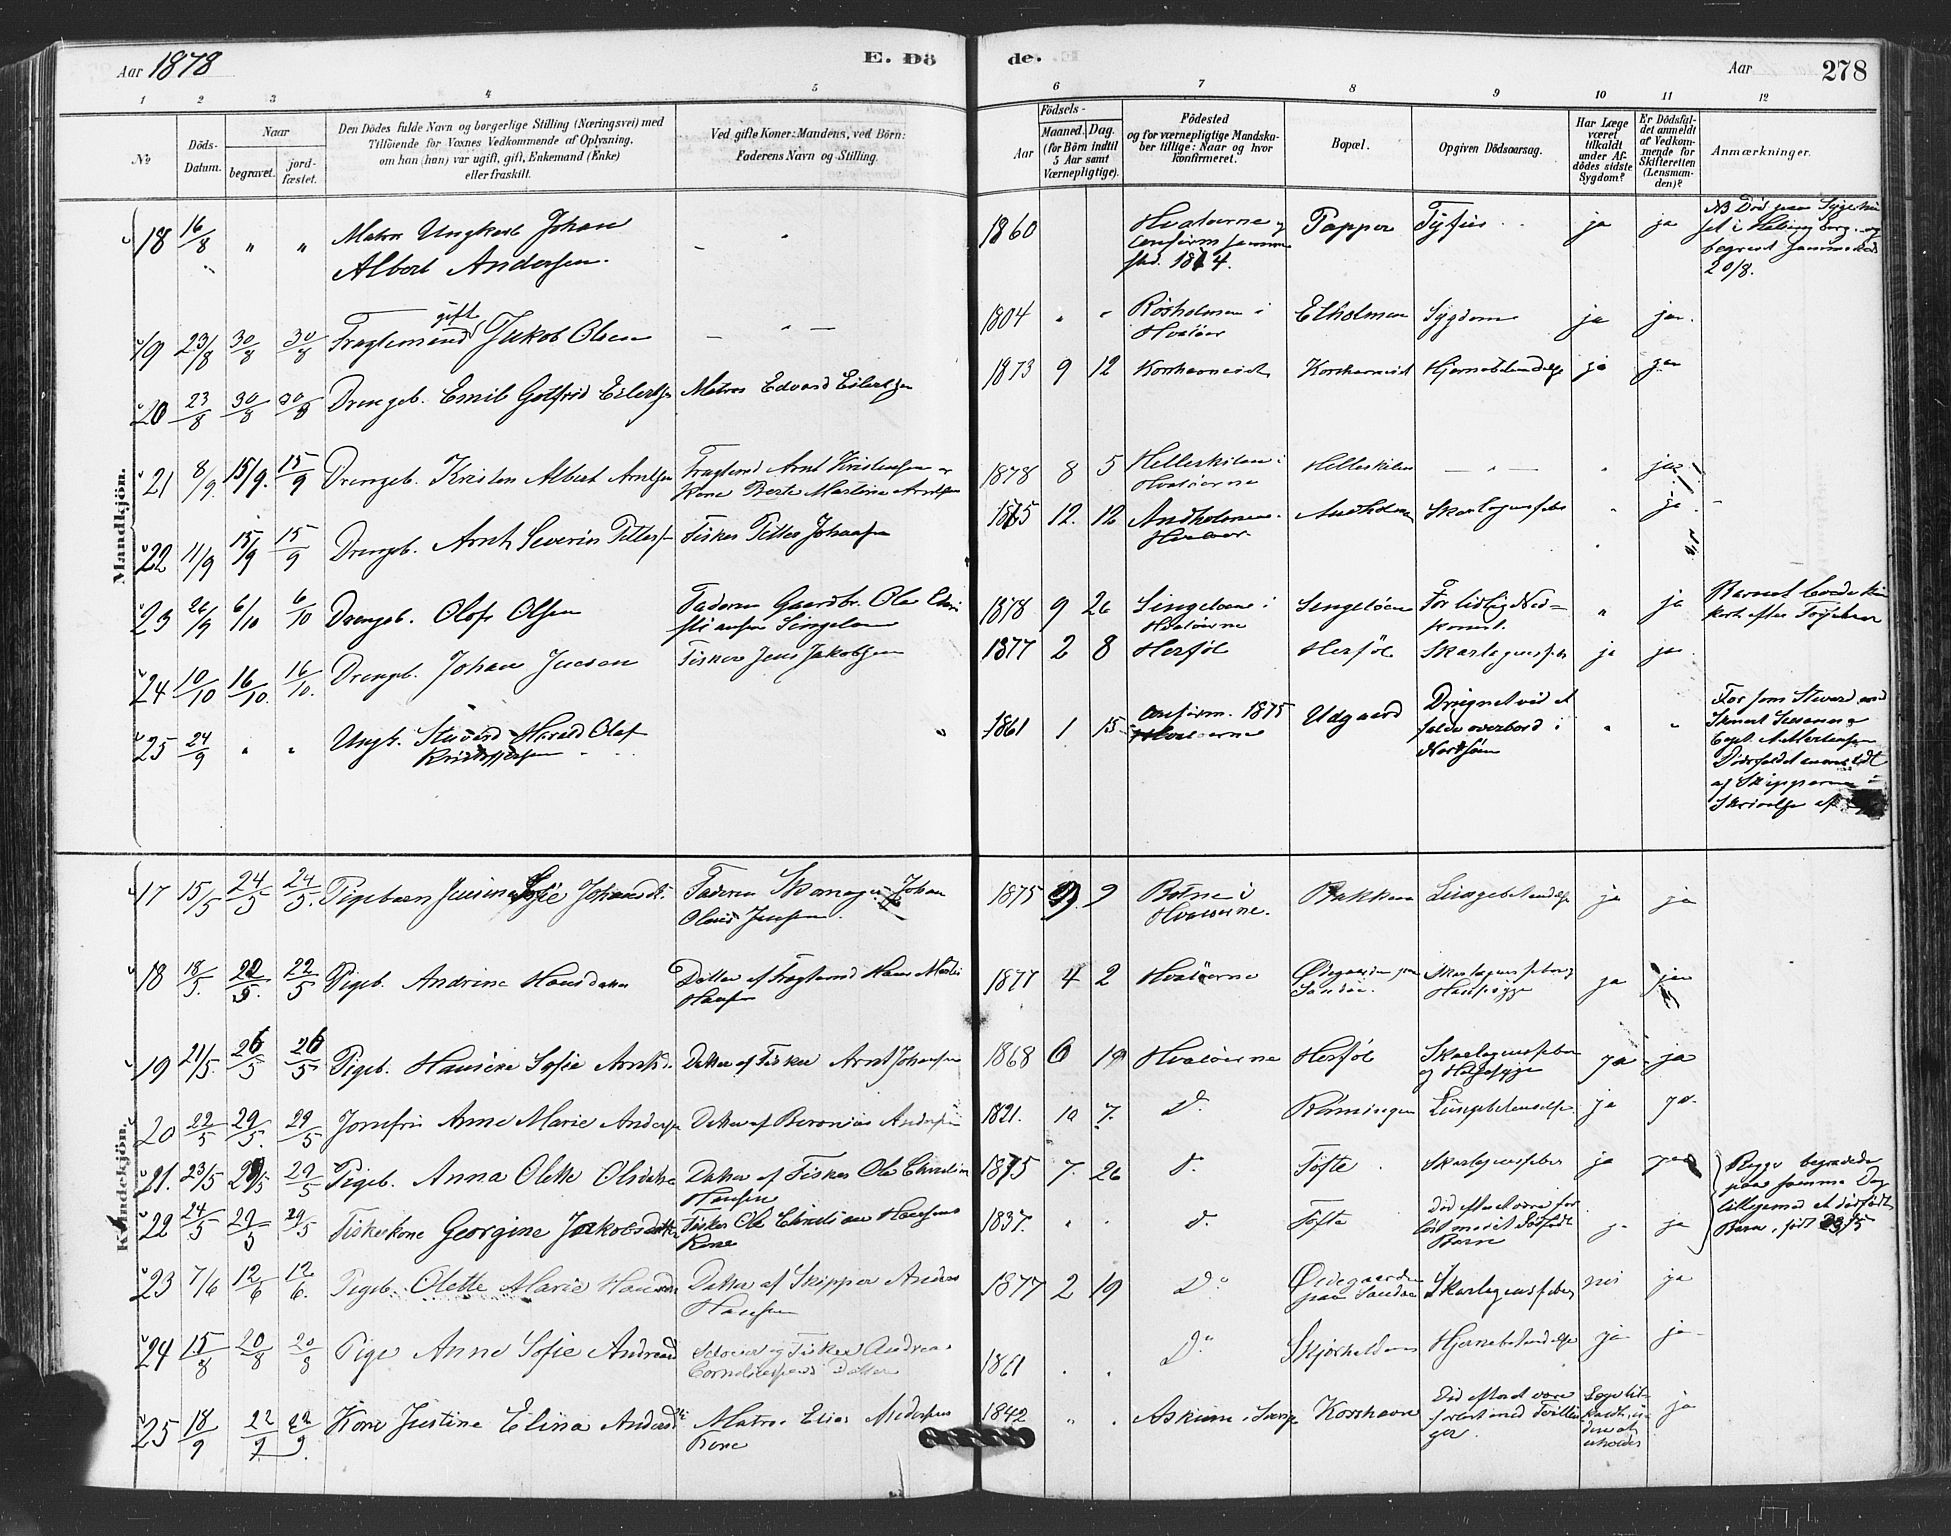 Aar 1878 E. Dö de. Aar 278
1 2 3 4 5 6 7 8 9 10 11 12
No
Döds-Datum.
Naar
begravet.
jord-fæstet.
Den Dödes fulde Navn og borgerlige Stilling (Næringsvei) med
Tilföiende for Voxnes Vedkommende af Oplysning.
om han (hun) var ugift, gift, Enkemand (Enke)
eller fraskilt.
Ved gifte Koner: Mandens, ved Börn:
Faderens Navn og Stilling.
Födsels-
Aar
Maaned. Dag.
(for Börn indtil
5 Aar samt
Værnepligtige).
Födested
og for værnepligtige Mandska-
ber tillige: Naar og hvor
konfirmeret.
Bopæl.
Opgiven Dödsaarsag.
Har Læge
været
tilkaldt
under Af-
dödes sidste
Sygdom?
Er Dödsfal-
det anmeldt
af Vedkom-
mende for
Skifteretten
(Lensman-
den)?
Anmærkninger.
Mandkjön.
18 16/8 " " Matros Ungkarl Johan
Albert Andersen. — " 1860 Hvaløerne og
Confirm. samme
sted. 1874. Papper Tyfus ja ja NB Död paa Sygehu
set i Helsingborg og
begravet sammesteds
20/8.
19 23/8 30/8 30/8 gift
Fragtemand Jakob Olsen — " — 1804 " " Rösholmen i
Hvaløer Elholmen Sygdom ja ja.
20 23/8 30/8 30/8 Drengeb. Emil Gotfrid Eilertsen Matros Edvard Eilertsen 1873 9 12 Korshavnsit Korshavnsit Hjernebetændelse ja ja
21 8/9 15/9. 15/9 Drengeb. Kristen Albert Arntsen Fragtmd Arnt Kristensen og
Kone Berte Martine Arntsen 1878 8 5 Helleskilen i
Hvaløerne Helleskilen — " — " ja
22 11/9 15/9 15/9 Drengeb. Arnt Severin Pettersen Fisker Petter Johansen 1875 12. 12 Andholmen i
Hvaløer Andholmen Skarlagensfeber " ja
23 26/9 6/10 6/10 Drengeb. Olof Olsen Faderen Gaardbr. Ole Chri
stiansen Singeløen 1878 9 26 Singeløen i
Hvaløerne Singeløen For tidlig Ned-
komst. " ja Barnet levede kun
kort efter Födselen
24 10/10 16/10. 16/10. Drengeb. Johan Jensen Fisker Jens Jakobsen 1877 2 8 Herføl Herføl Skarlagensfeber ja ja
25 24/9 " " Ungk. Stuard Harald Olaf
Kristoffersen " 1861 1 15 Confirm. 1875
Hvaløerne Udgaard Druknet ved at
falde overbord i
Nordsøen " " For som Steward med
Capt. A. Mortensen
Dødsfaldet anmeldt
af Skipperen i
Skrivelse af
Kvindekjön.
17 15/5 24/5 24/5. Pigebarn Jensine Sofie Johansdt. Faderen Skomager Johan
Olaus Jensen. 1875 2 Botne i
Hvaløerne. Bakken Lungebetændelse ja ja
18 18/5. 22/5. 22/5 Pigeb. Andrine Hansdatter Datter af Fragtemd Hans Martin
Hansen 1877 4 2 Hvaløerne Ødegaarden paa
Sandøe. Skarlagensfeber og
Halssyge ja ja
19 21/5. 26/5 26/5 Pigeb. Hansine Sofie Arntsd. Datter af Fisker Arnt Johansen 1868 6 19 Hvaløerne Herføl Skarlagensfeber
og Halssyge ja ja
20 22/5 29/5. 29/5 Jomfru Anne Marie Andersen Datter af Beronius Andersen 1821. 10 7. D. Lungebetændelse ja ja.
21. 23/5 29/5 29/5 Pigeb. Anna Olette Olsdatter Datter af Fisker Ole Christian
Hansen 1875 7. 26 D. Tofte Skarlagensfeber ja ja Begge begravede
paa samme Dag
tilligemed et dødfødt
Barn, født 23/5
22 24/5 29/5 29/5 Fiskerkone Georgine Jakobsdatter Fisker Ole Christian Hansens
Kone 1837. " " D. Tofte Død efter at være for
løst med et Dødfødt
Barn ja ja
23 7/6 12/6 12/6. Pigeb. Olette Marie Hansen Datter af Skipper Anders
Hansen 1877 2 19 Do Ødegaarden
paa Sandøe Skarlagensfeber nei ja
24 15/8 20/8 20/8 Pige Anne Sofie Andreasd. Selveier og Fisker Andreas
Corneliussens Datter 1861 . . Do Skjærhalden Hjernebetændelse ja ja
25 18/9 22/9. 22/9. Kone Justine Elina Andersd. Matros Elias Andersens
Kone 1842 " . Askum i Sverige Korshavn Død efter at være
forløst med Tvillin
ger Læge til-
kaldt, ja